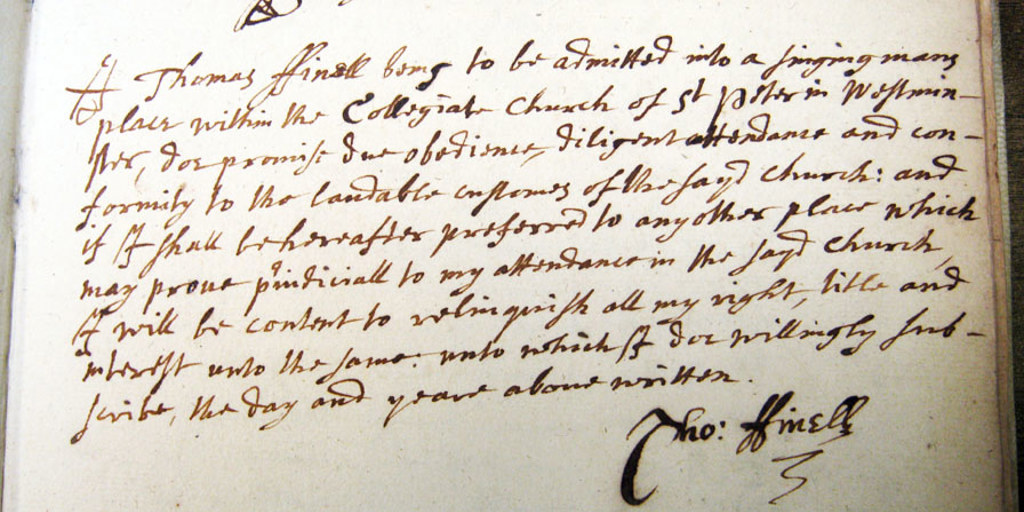 I Thomas ffinell being to be admitted into a singingmans
place within the Collegiate Church of St Peter in Westmin-
ster, doe promise due obedience, diligent attendance and con-
formity to the laudable customes of the sayd Church: and
if I shall be hereafter preferred to any other place which
may prove p'iudiciall to my attendance in the sayd Church,
I will be content to relinquish all my right, title and
interest unto the same: unto which I doe willingly sub-
scribe, the day and yeare above written.
Tho: ffinell